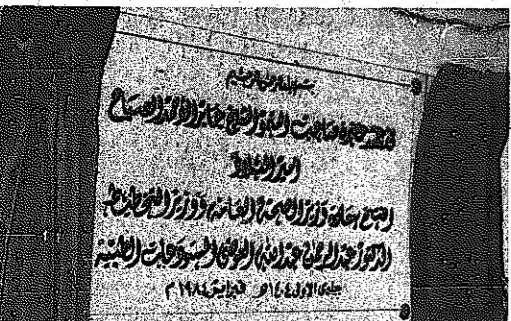 بسم الله الرحمن الرحيم
تحت رعاية صاحب السمو الشيخ جابر الأحمد الصباح
أمير البلاد
افتتح سعادة وزير الصحة العامة ووزير التخطيط
الدكتور عبد الرحمن عبد الله العوضي المستودعات الطبية
جمادى الأولى ١٤٠٤ هـ فبراير ١٩٨٤ م